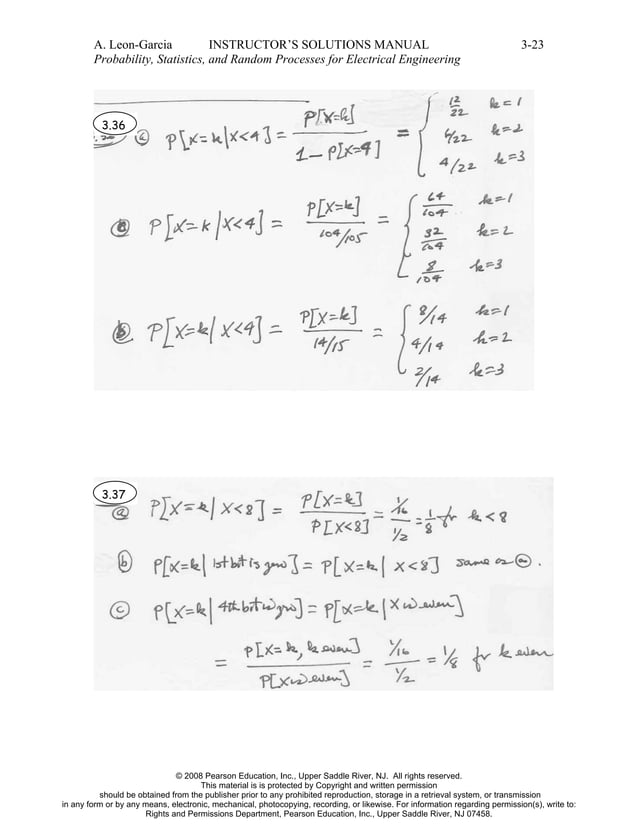 A. Leon-Garcia INSTRUCTOR'S SOLUTIONS MANUAL 3-23
Probability, Statistics, and Random Processes for Electrical Engineering
3.36
ⓐ P[X=k|X<4] = P[X=k] / 1 − P[X=4] = { 12/22 k=1
6/22 k=2
4/22 k=3
P[X=k|X<4] = P[X=k] / 104/105 = { 64/104 k=1
32/104 k=2
8/104 k=3
ⓑ P[X=k|X<4] = P[X=k] / 14/15 = { 8/14 k=1
4/14 k=2
2/14 k=3
3.37
ⓐ P[X=k|X<8] = P[X=k] / P[X<8] = 1/16 / 1/2 = 1/8 for k<8
ⓑ P[X=k|1st bit is zero] = P[X=k|X<8] same as ⓐ.
ⓒ P[X=k|4th bit is zero] = P[X=k|X is even]
= P[X=k, k even] / P[X is even] = 1/16 / 1/2 = 1/8 for k even
© 2008 Pearson Education, Inc., Upper Saddle River, NJ. All rights reserved.
This material is is protected by Copyright and written permission
should be obtained from the publisher prior to any prohibited reproduction, storage in a retrieval system, or transmission
in any form or by any means, electronic, mechanical, photocopying, recording, or likewise. For information regarding permission(s), write to:
Rights and Permissions Department, Pearson Education, Inc., Upper Saddle River, NJ 07458.